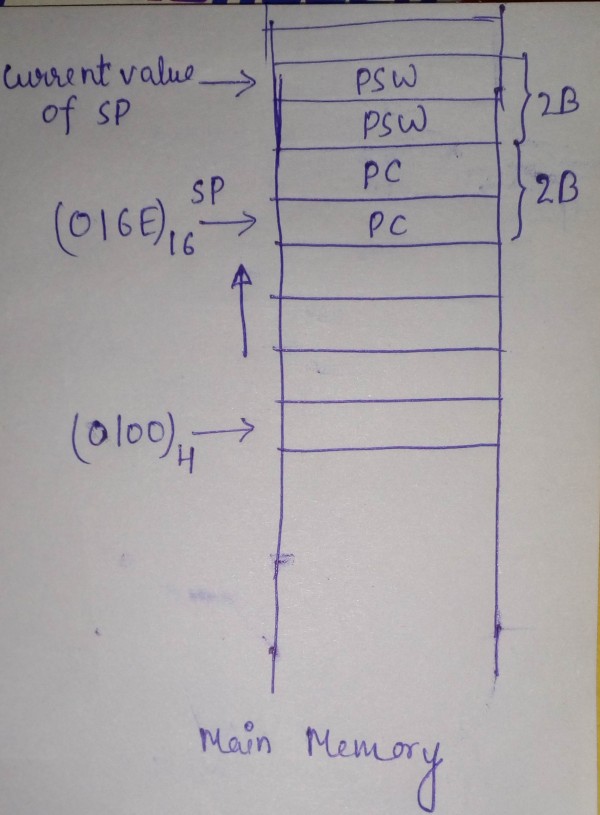 Current value of SP
PSW
2B
PSW
PC
2B
SP
(016E)16
PC
(0100)H
Main Memory